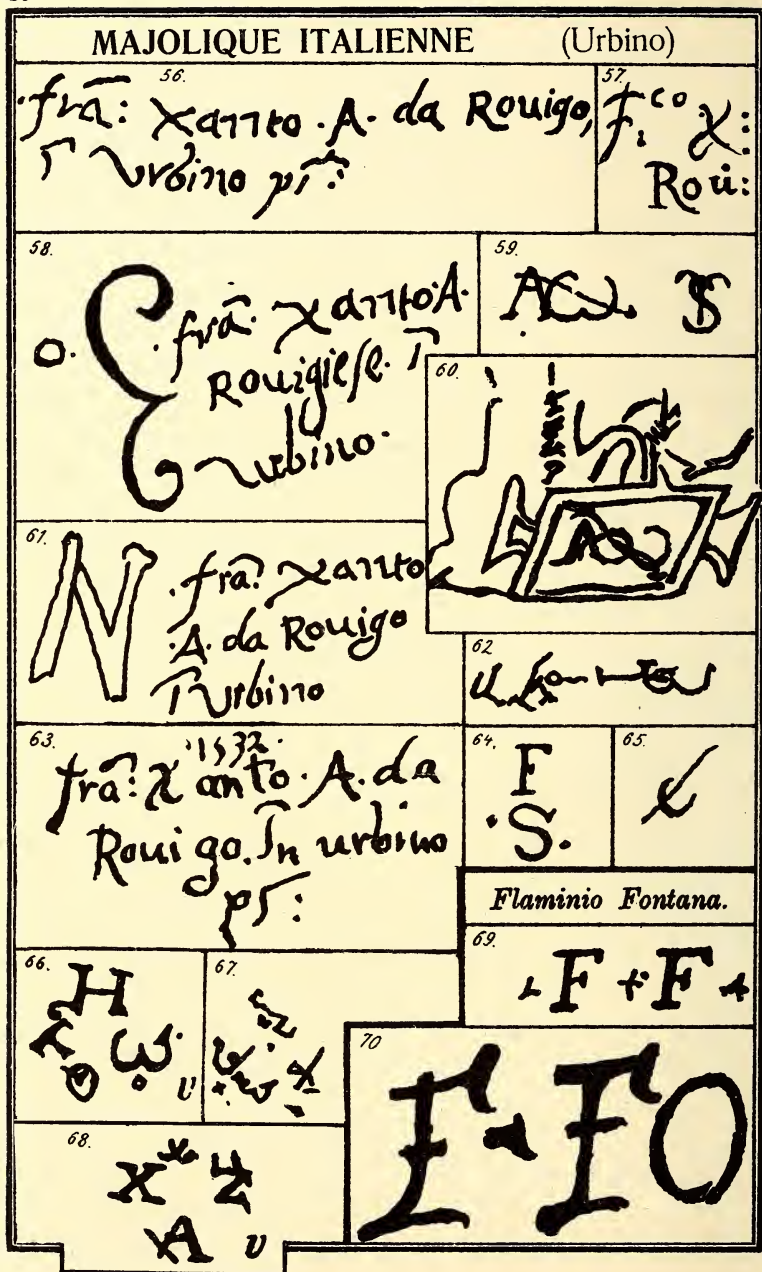 MAJOLIQUE ITALIENNE (Urbino)
56.
.frã: Xanto .A. da Rouigo,
ĩ Urbino pĩ:
57.
F.co X:
Roui:
58.
o. E .frã. Xanto.A.
Rouigiese. ĩ
Urbino.
59.
60.
61.
N .frã: Xanto
.A. da Rouigo
ĩ Urbino
62
63.
.1532.
frã: Xanto. A. da
Rouigo. In urbino
pĩ:
64.
F
.S.
65.
Flaminio Fontana.
66.
H
U
67.
68.
X Z
A U
69.
+F+F+
70
F.FO